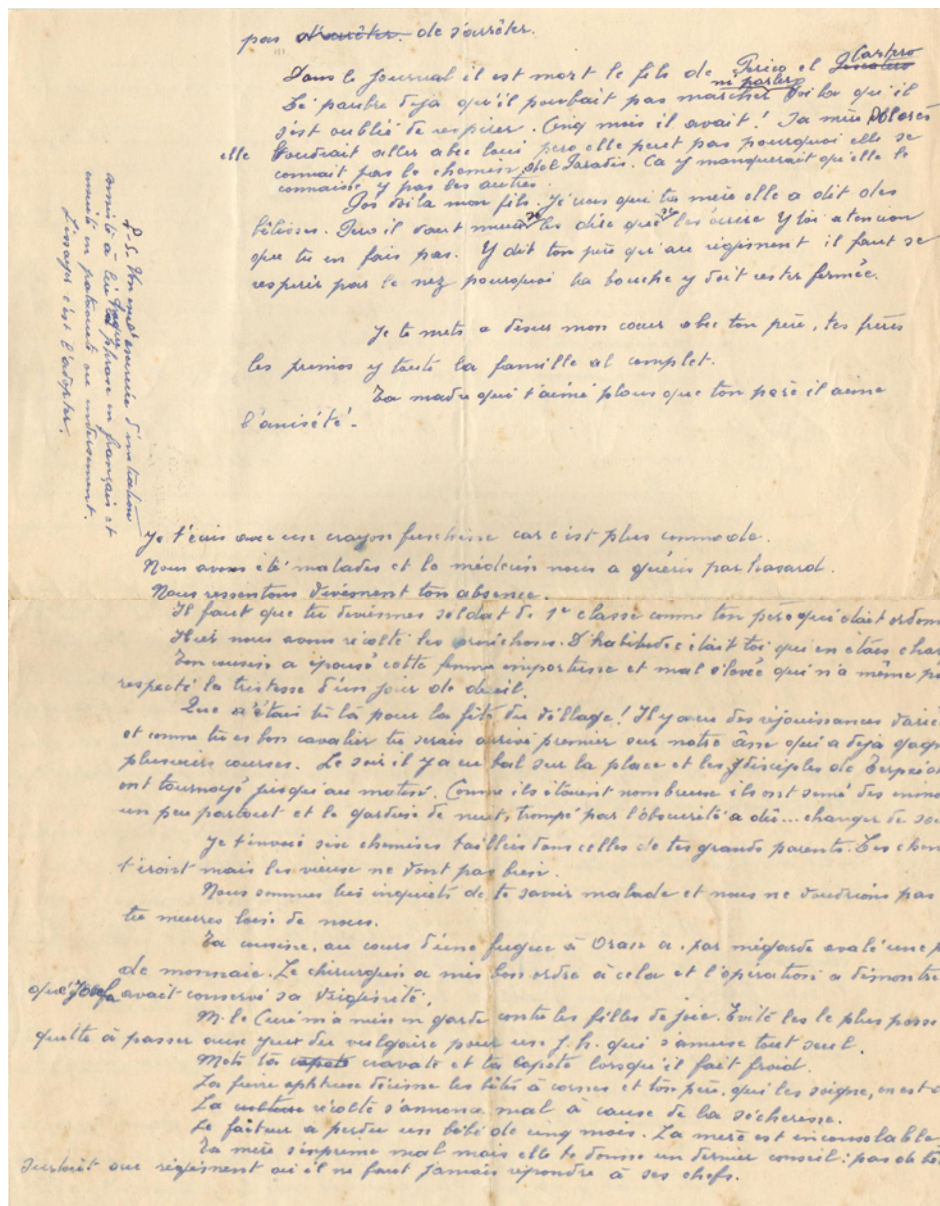 pas d'arrêter. de s'arrêter.
Dans le journal il est mort le fils de Perico el Cartero
Lé paubre deja qu'il poubait pas marcher ni parler Voila qu'il
s'est oublié de respirer. Cinq mois il avait! Sa mère Dolorès
elle Voudrait aller abec loui pero elle peut pas pourquoi elle se
connait pas le chemin del Paradis. Ca y manquerait qu'elle le
connaisse y pas les autres.
Pos Voila mon fils. Je crois que ta mère elle a dit des
bêtisses. Pero il vaut mieux les dire que les écrire Y toi atencion
que tu en fais pas. Y dit ton père qu'au régiment il faut se
respirer par le nez pourquoi la bouche y doit rester fermée.
Je te mets a dessus mon cœur abec ton père, tes frères
les primos y toute la famille al complet.
Ta madre qui t'aime plous que ton père il aime
l'anisété!
P.S. Un exercice d'imitation
consiste à lire la phrase en français et
ensuite en pataouete ou inversement.
L'essayer c'est l'adopter.
Je t'écris avec un crayon fuschine car c'est plus commode.
Nous avons été malades et le médecin nous a guéris par hasard.
Nous ressentons vivement ton absence.
Il faut que tu deviennes soldat de 1e classe comme ton père qui était ordon
Hier nous avons récolté les cornichons. D'habitude c'était toi qui en étais char
Ton cousin a épousé cette femme importune et mal élevée qui n'a même pa
respecté la tristesse d'un jour de deuil.
Que n'étais tu là pour la fête du village! Il y a eu des réjouissances varié
et comme tu es bon cavalier tu serais arrivé premier sur notre âne qui a deja gagn
plusieurs courses. Le soir il y a eu bal sur la place et les disciples de Terpsic
ont tournoyé jusqu'au matin. Comme ils étaient nombreux ils ont semé des
un peu partout et le gardien de nuit, trompé par l'obscurité a dû... changer de
Je t'envoie six chemises taillées dans celles de tes grands parents. Les
t'iront mais les vieux ne vont pas bien.
Nous sommes très inquiets de te savoir malade et nous ne voudrions pas
tu meures loin de nous.
Ta cousine, au cours d'une fugue à Oran a par mégarde avalé une p
de monnaie. Le chirurgien a mis bon ordre à cela et l'opération a démontré
que Josefa avait conservé sa virginité.
M. le Curé m'a mise en garde contre les filles de joie. Evite les le plus posse
quitte à passer aux yeux du vulgaire pour un j.h. qui s'amuse tout seul.
Mets ta capote cravate et ta capote lorsqu'il fait froid.
La fièvre aphteuse décime les bêtes à cornes et ton père, qui les soigne, en est
La culture récolte s'annonce mal à cause de la sécheresse.
Le facteur a perdu un bébé de cinq mois. La mère est inconsolable
Ta mère s'exprime mal mais elle te donne un dernier conseil: pas de
surtout au régiment où il ne faut jamais répondre à ses chefs.